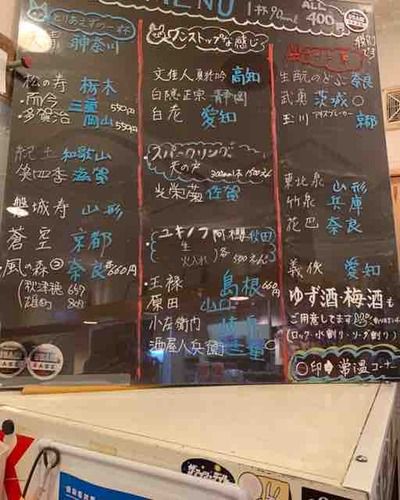 MENU
1杯90ml ALL 400円
とりあえずの一杯
神奈川
松の寿 栃木
而今 三重 550円
多賀治 岡山 550円
紀土 和歌山
笑四季 滋賀
磐城寿 山形
蒼空 京都
風の森② 奈良 各660円
(秋津穂 657
雄町 807
ノンストップな感じ
文佳人 夏吟 高知
白隠正宗 静岡
白老 愛知
スパークリング
天の戸
光栄菊 佐賀
ユキノフ 阿櫻 秋田
生
火入れ 各500えん
王禄 島根 660円
原田 山口
小左衛門 岐阜
酒屋八兵衛 三重○
生酛のどぶ 奈良
武勇 茨城○
玉川 アイスブレーカー 京都
東北泉 山形
竹泉 兵庫
花巴 奈良
義侠 愛知
ゆず酒・梅酒も
ご用意してます
(ロック・水割り・ソーダ割り)
○印➡常温コーナー